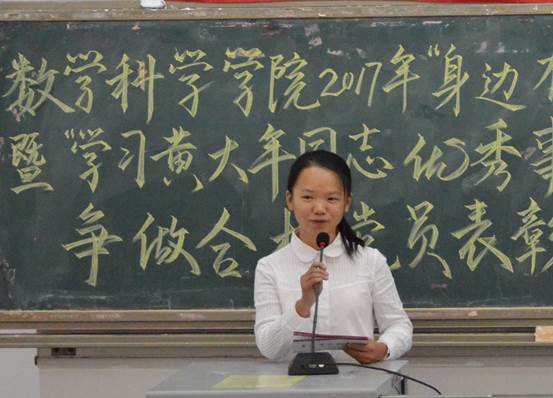 数学科学学院2017年"身边
暨"学习黄大年同志优秀事
争做合 党员表彰